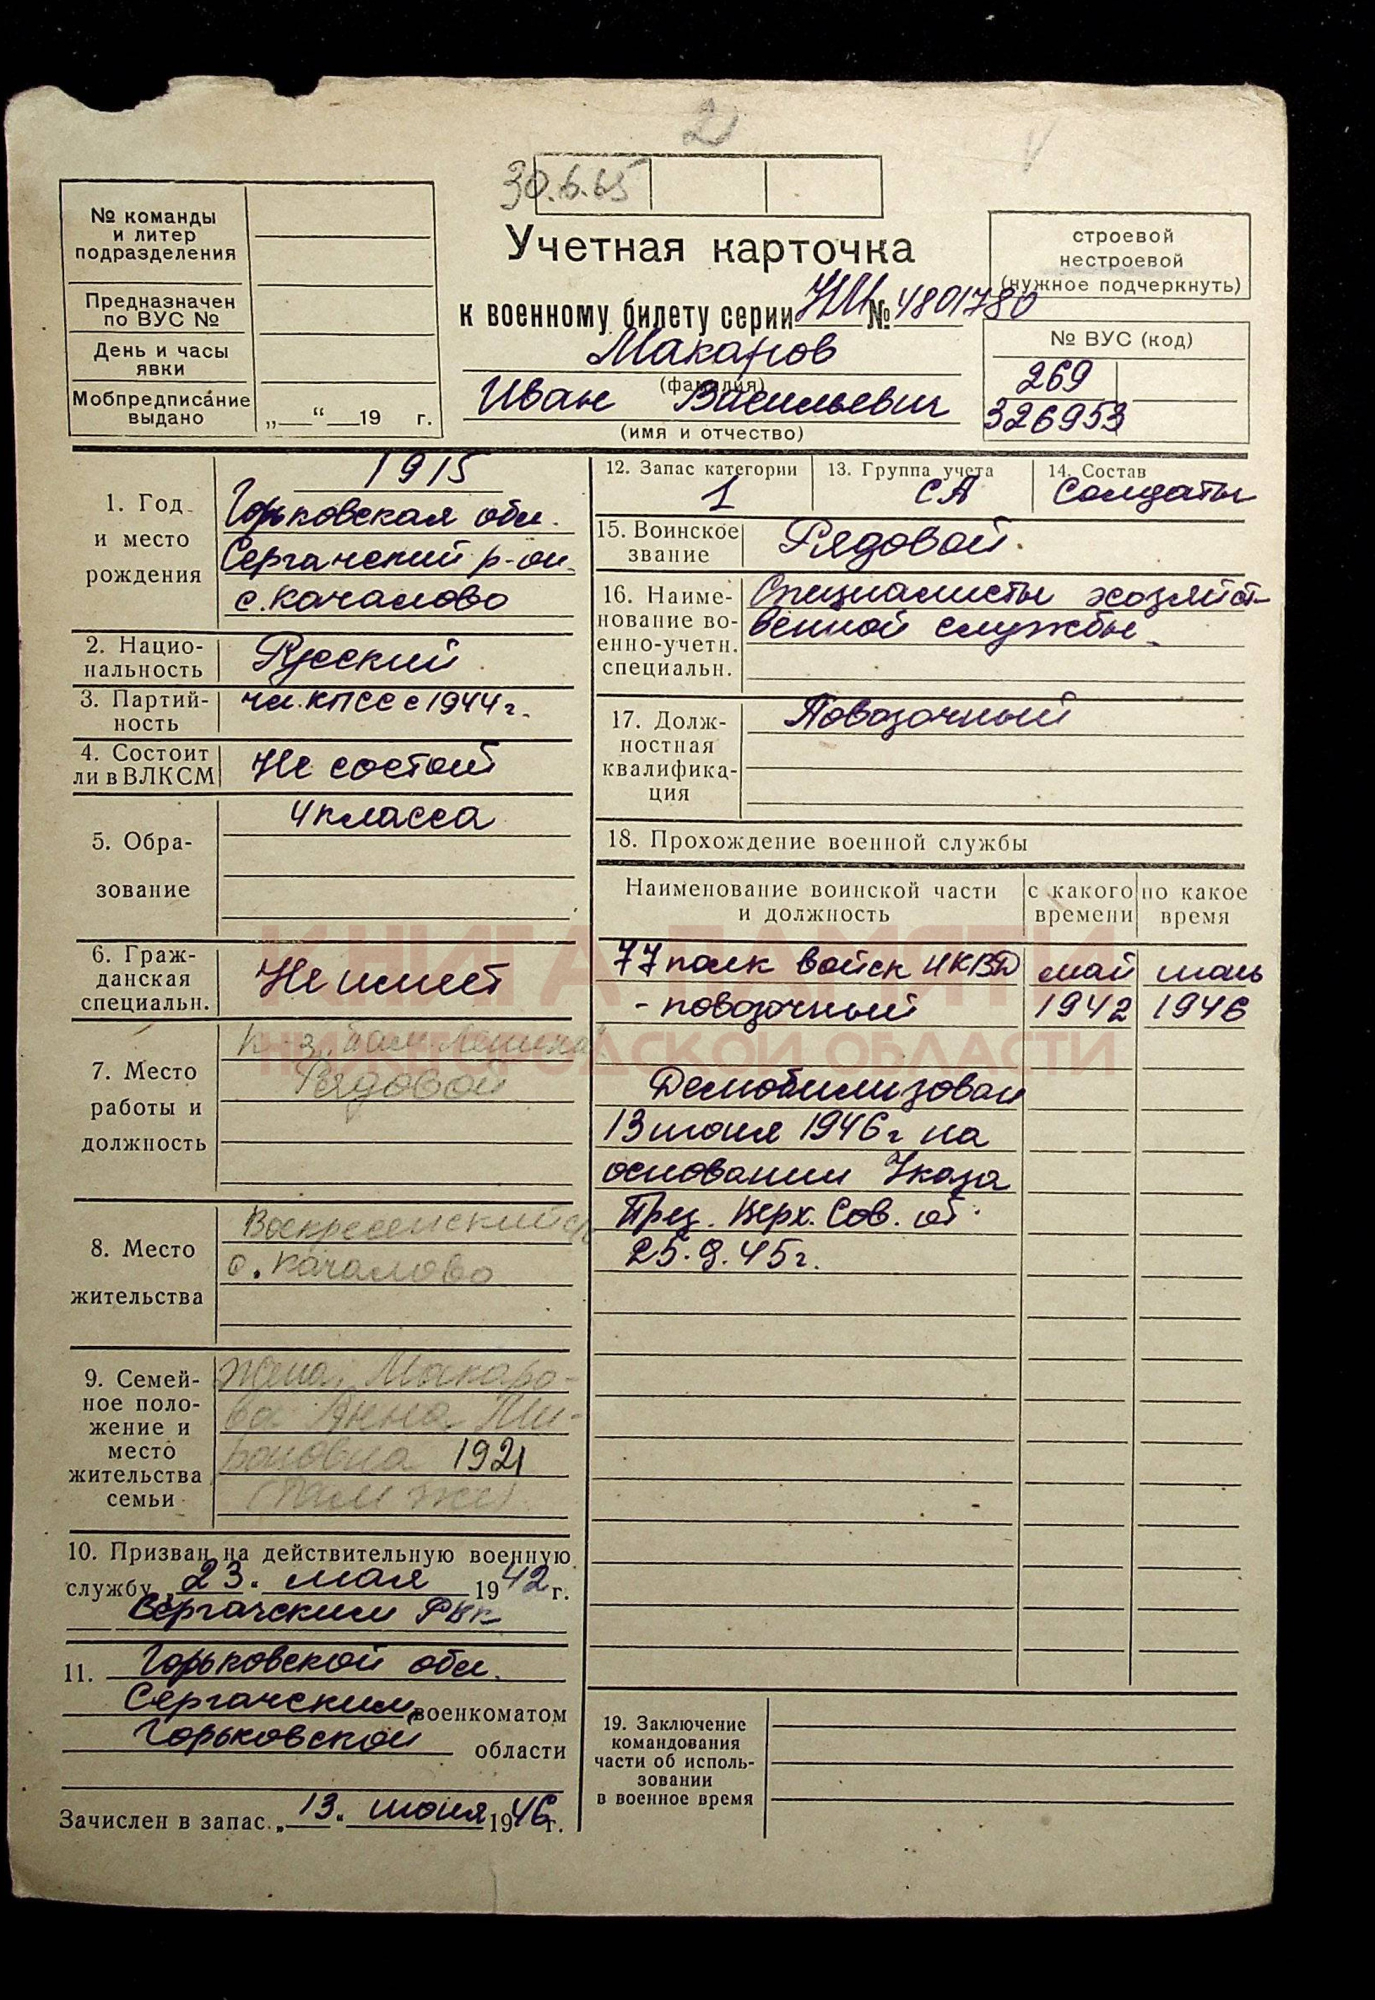 2
30.6.65
№ команды
и литер
подразделения
Предназначен
по ВУС №
День и часы
явки
Мобпредписание
выдано
„ “ 19 г.
Учетная карточка
к военному билету серии НИ № 4801780
Макаров
(фамилия)
Иван Васильевич
(имя и отчество)
строевой
нестроевой
(нужное подчеркнуть)
№ ВУС (код)
269
326953
1. Год
и место
рождения
1915
Горьковская обл.
Сергачский р-он
с. Качалово
2. Нацио-
нальность
Русский
3. Партий-
ность
чл. КПСС с 1944 г.
4. Состоит
ли в ВЛКСМ
Не состоит
5. Обра-
зование
4 класса
6. Граж-
данская
специальн.
Не имеет
7. Место
работы и
должность
к-з
Рядовой
8. Место
жительства
Воскресенский с/с
с. Качалово
9. Семей-
ное поло-
жение и
место
жительства
семьи
жена, Макаро-
ва Анна
1921
(там же)
10. Призван на действительную военную
службу „23“ мая 1942 г.
Сергачским РВК
11. Горьковской обл.
Сергачским военкоматом
Горьковской области
Зачислен в запас „13“ июня 1946 г.
12. Запас категории
1
13. Группа учета
СА
14. Состав
Солдаты
15. Воинское
звание
Рядовой
16. Наиме-
нование во-
енно-учетн.
специальн.
Специалисты хозяйст-
венной службы
17. Долж-
ностная
квалифика-
ция
Повозочный
18. Прохождение военной службы
Наименование воинской части
и должность
с какого
времени
по какое
время
77 полк войск НКВД май июнь
- повозочный 1942 1946
Демобилизован
13 июня 1946 г на
основании Указа
През. Верх. Сов. от
25.9.45 г.
19. Заключение
командования
части об исполь-
зовании
в военное время
КНИГА ПАМЯТИ
НИЖЕГОРОДСКОЙ ОБЛАСТИ